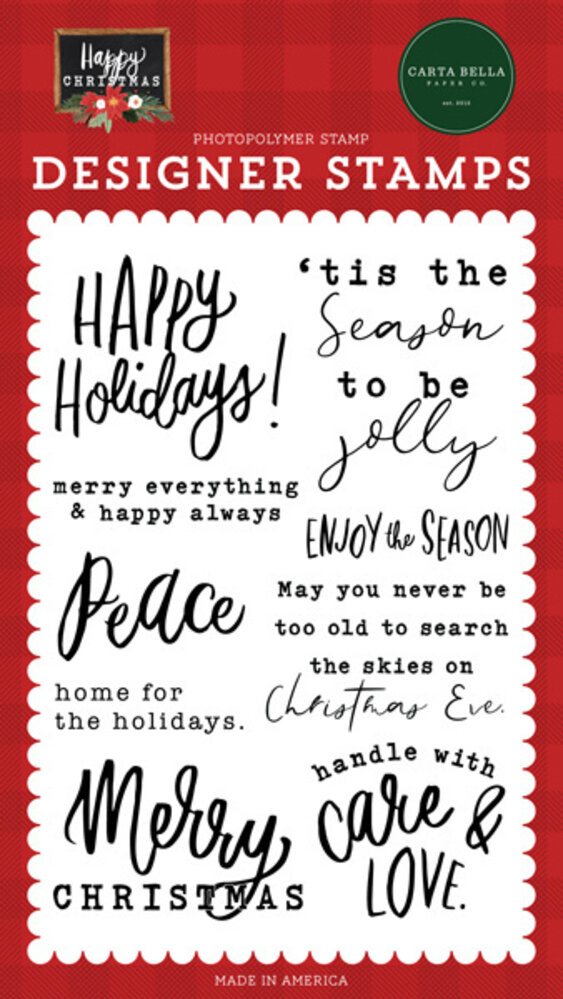 Happy
CHRISTMAS
CARTA BELLA
PAPER CO.
est. 2012
PHOTOPOLYMER STAMP
DESIGNER STAMPS
HAPPY
Holidays!
merry everything
& happy always
Peace
home for
the holidays.
Merry
CHRISTMAS
‘tis the
Season
to be
jolly
ENJOY the SEASON
May you never be
too old to search
the skies on
Christmas Eve.
handle with
care &
LOVE.
MADE IN AMERICA